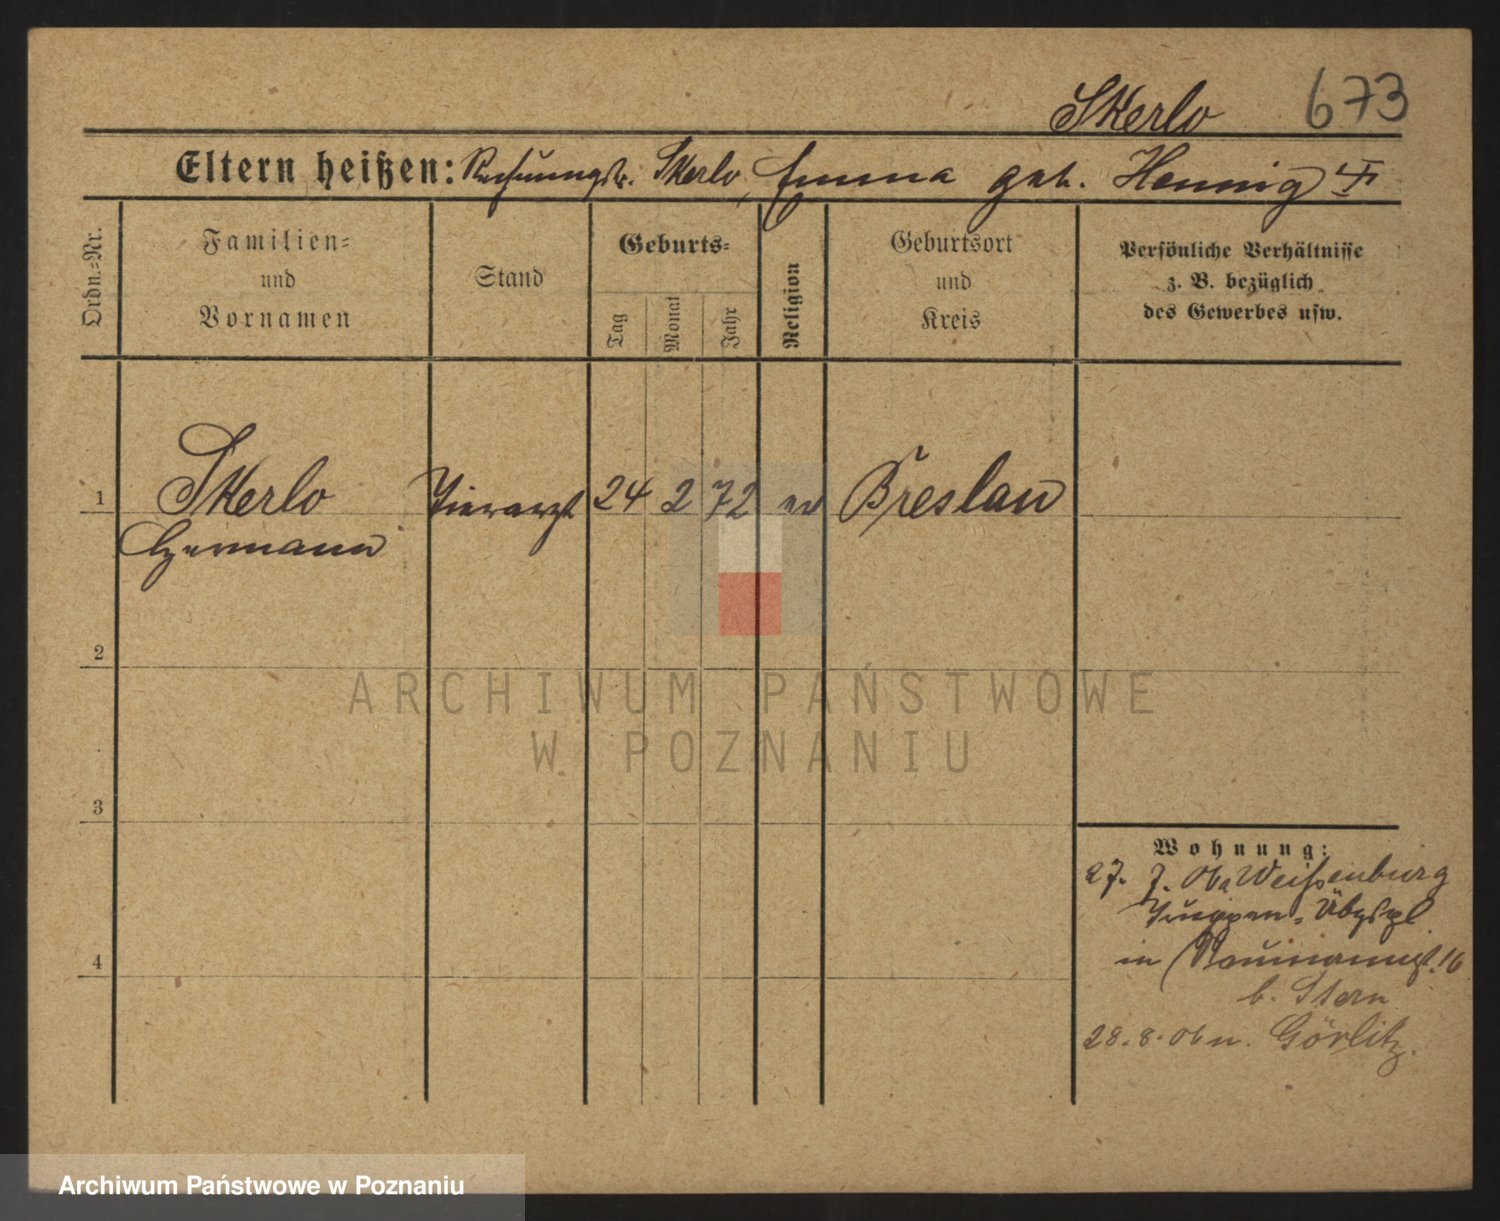 Skerlo 673
Eltern heißen: Rechnungsr. Skerlo, Emma geb. Hennig
Ordn.=Nr.
Familien=
und
Vornamen
Stand
Geburts=
Tag
Monat
Jahr
Religion
Geburtsort
und
Kreis
Persönliche Verhältnisse
z. B. bezüglich
des Gewerbes usw.
1 Skerlo Tierarzt 24 2 72 ev Breslau
Hermann
2
ARCHIWUM PAŃSTWOWE
W POZNANIU
3
4
Wohnung:
27. 7. 06 a Weißenburg
Truppen=Übgspl.
in Naumannst. 16
b. Stern
28. 8. 06 n. Görlitz.
Archiwum Państwowe w Poznaniu